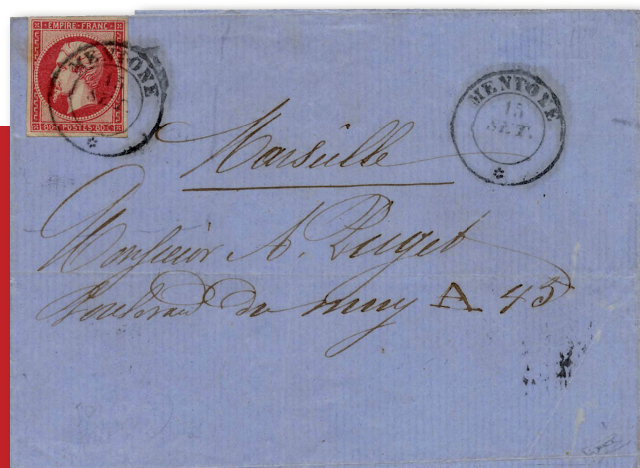 EMPIRE FRANC
80 C POSTES 80 C
MENTONE
MENTONE
15
SET.
Marseille
Monsieur A. Puget
Boulevard du muy A 45